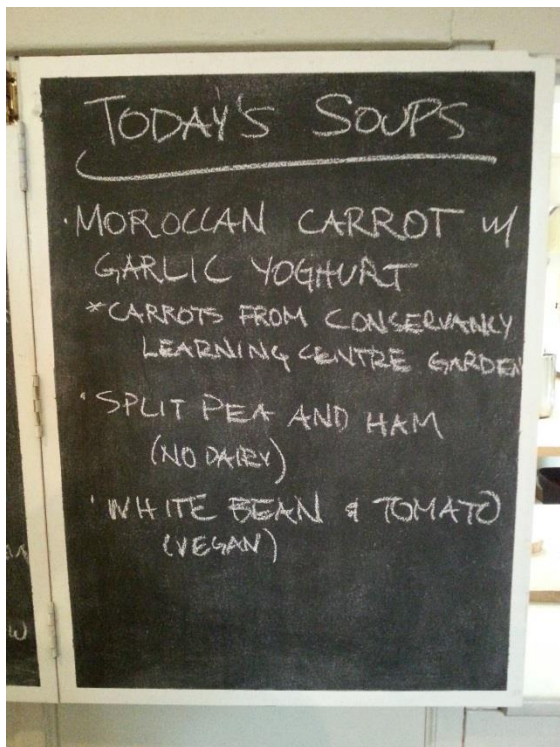 TODAY'S SOUPS
· MOROCCAN CARROT w/
GARLIC YOGHURT
*CARROTS FROM CONSERVANCY
LEARNING CENTRE GARDEN
· SPLIT PEA AND HAM
(NO DAIRY)
· WHITE BEAN & TOMATO
(VEGAN)